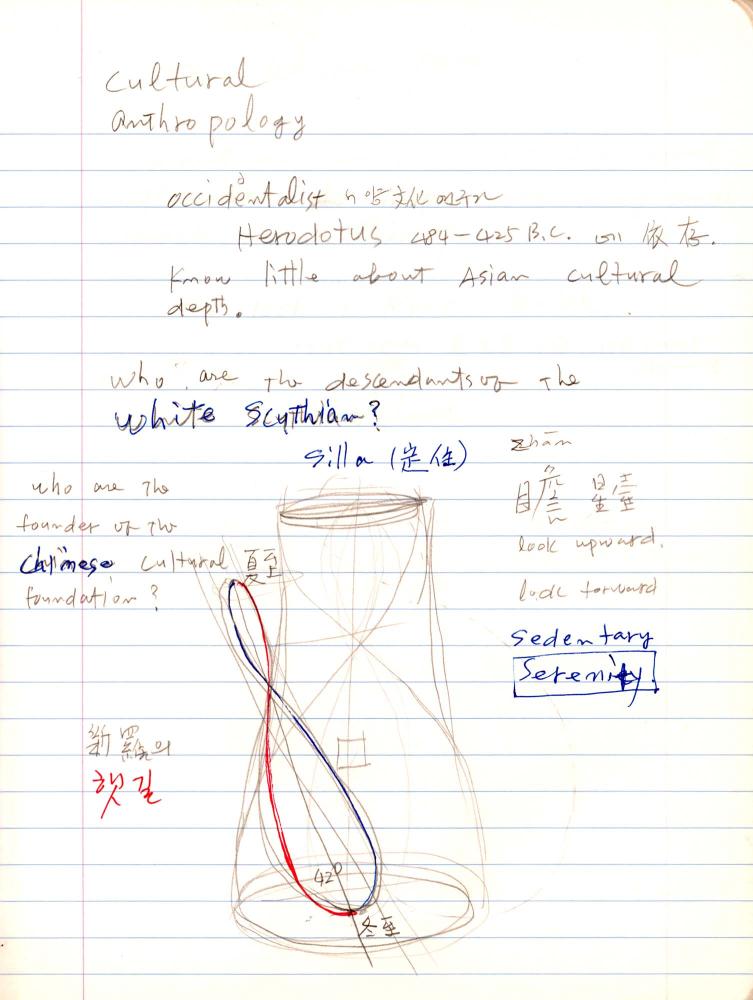 Cultural
Anthropology
occidentalist 文化
Herodotus 484-425 B.C. 에 依存.
Know little about Asian cultural
depth.
who are the descendants of the
White Scythian?
Silla (定住)
zhān
瞻星臺
look upward.
look forward
who are the
founder of the
Chinese cultural
foundation?
夏至
Sedentary
Serenity.
新羅의
햇길
42°
冬至